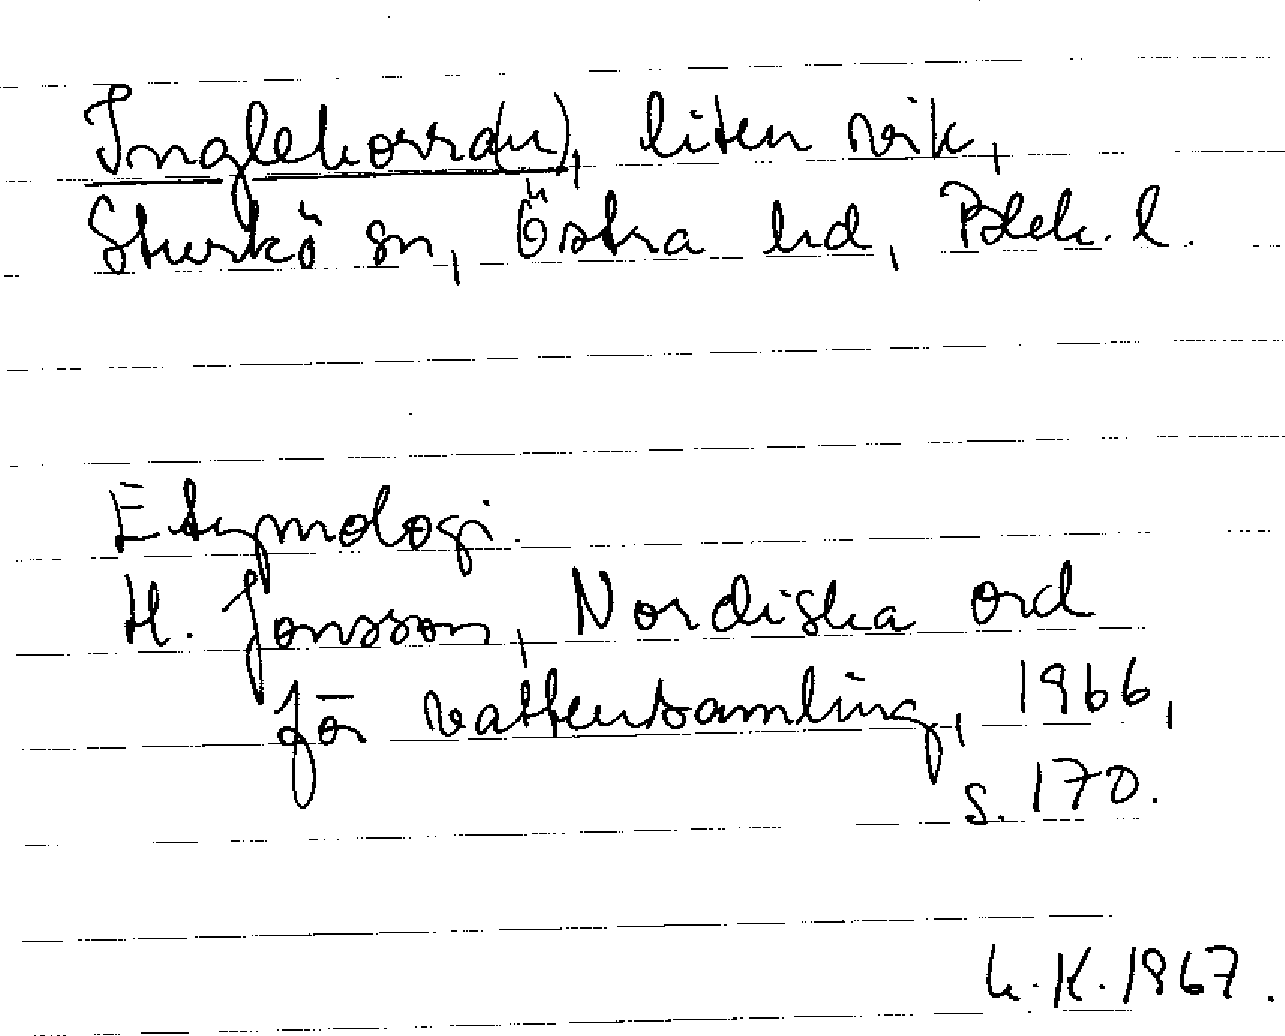 Inglekorra(n), liten vik,
Sturkö sn, Östra hd, Blek. l.
Etymologi.
H. Jonsson, Nordiska ord
för vattensamling, 1966,
s. 170.
L. K. 1967.